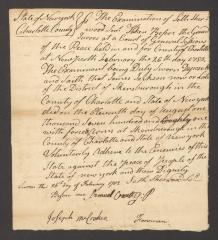 State of New york
Charlotte County
The Examination of Seth Sher
wood taken Before the Grand
Jurors at a Court of General Sessions
of the Peace held in and for County Charlotte
at New Perth February the 26th day 1782
The Examinant being Duly sworn Deposeth
and Saith that James Jackson now or late
of the District of Skensborough in the
County of Charlotte and State of New york
did on the Eleventh day of August one
thousand Seven hundred and Eighty one
with force & arms at Skensborough in the
County of Charlotte and State of New york
Voluntarily Adhere to the Enemies of this
State against the Peace of People of the
State of New york and their Dignity
Sworn the 26th day of Febury 1782 Seth Sherwood
Before me
Joseph McCracken Foreman